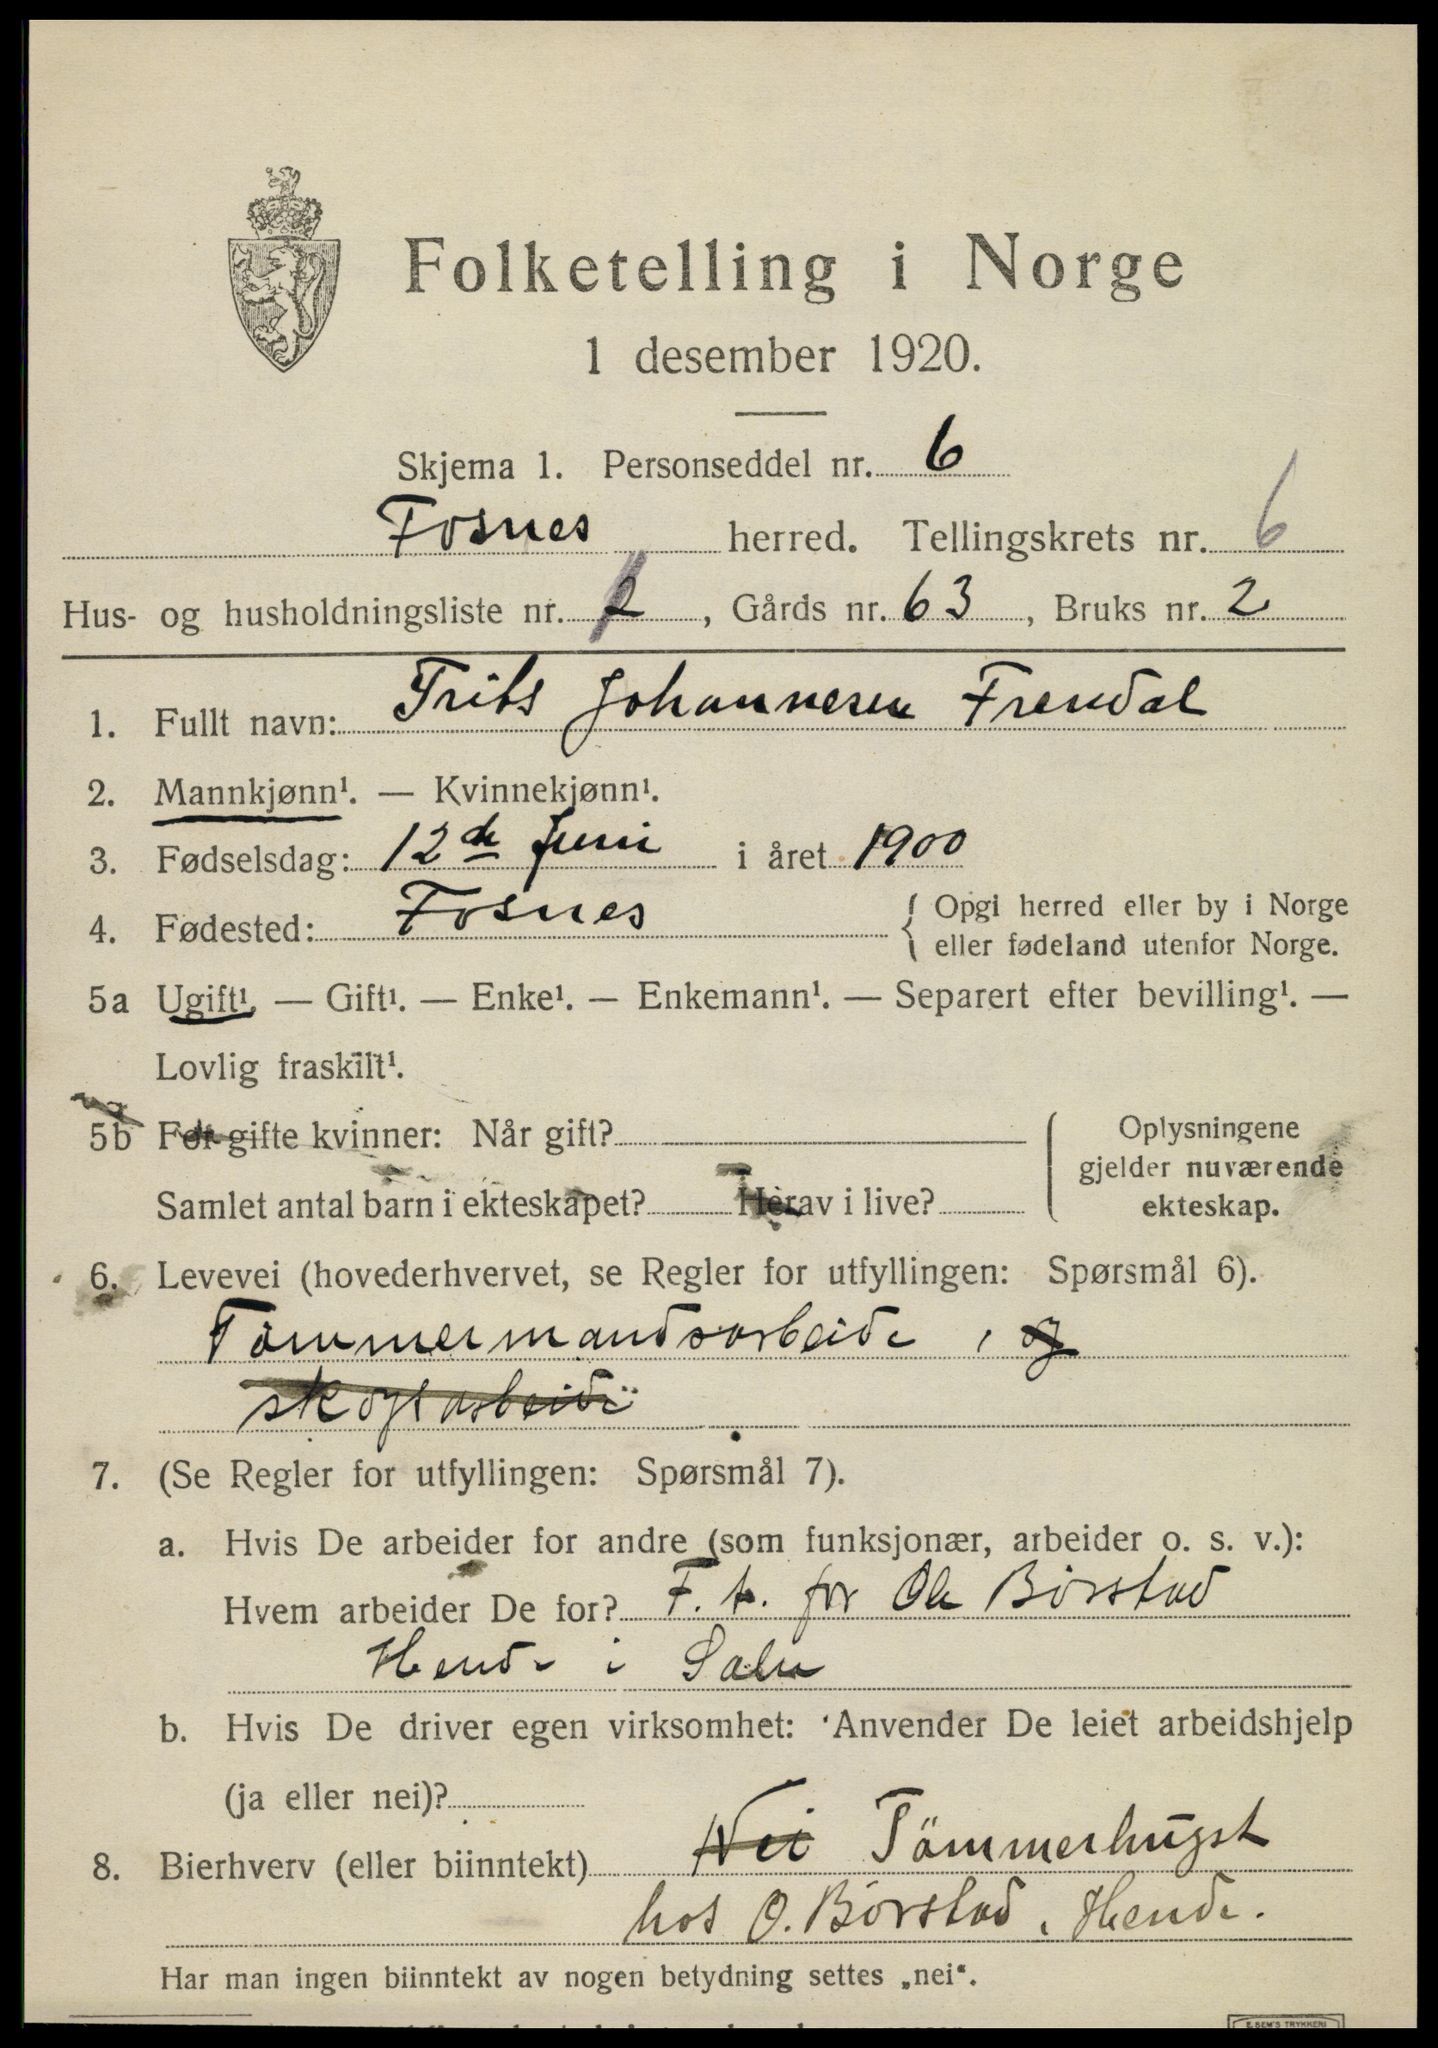 Folketelling i Norge
1 desember 1920.
Skjema 1. Personseddel nr. 6
Fosnes herred. Tellingskrets nr. 6
Hus- og husholdningsliste nr. 2, Gårds nr. 63, Bruks nr. 2
1. Fullt navn: Frits Johannesen Frendal
2. Mannkjønn¹. — Kvinnekjønn¹.
3. Fødselsdag: 12de Juni i året 1900
4. Fødested: Fosnes { Opgi herred eller by i Norge
eller fødeland utenfor Norge.
5a Ugift¹. — Gift¹. — Enke¹. — Enkemann¹. — Separert efter bevilling¹. —
Lovlig fraskilt¹.
5b For gifte kvinner: Når gift?
Samlet antal barn i ekteskapet? Herav i live?
Oplysningene
gjelder nuværende
ekteskap.
6. Levevei (hovederhvervet, se Regler for utfyllingen: Spørsmål 6).
Tömmermandsarbeide, og
skogsarbeide
7. (Se Regler for utfyllingen: Spørsmål 7).
a. Hvis De arbeider for andre (som funksjonær, arbeider o. s. v.):
Hvem arbeider De for? F. t. for Ole Börstad
i
b. Hvis De driver egen virksomhet: Anvender De leiet arbeidshjelp
(ja eller nei)?
8. Bierhverv (eller biinntekt) Nei Tömmerhugst
hos O. Börstad,
Har man ingen biinntekt av nogen betydning settes „nei“.